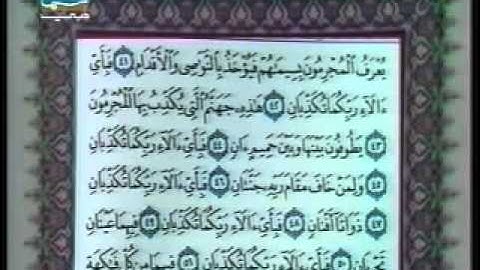 صعيد
يُعْرَفُ ٱلْمُجْرِمُونَ بِسِيمَـٰهُمْ فَيُؤْخَذُ بِٱلنَّوَٰصِى وَٱلْأَقْدَامِ ٤١ فَبِأَىِّ
ءَالَآءِ رَبِّكُمَا تُكَذِّبَانِ ٤٢ هَـٰذِهِۦ جَهَنَّمُ ٱلَّتِى يُكَذِّبُ بِهَا ٱلْمُجْرِمُونَ
٤٣ يَطُوفُونَ بَيْنَهَا وَبَيْنَ حَمِيمٍ ءَانٍ ٤٤ فَبِأَىِّ ءَالَآءِ رَبِّكُمَا تُكَذِّبَانِ
٤٥ وَلِمَنْ خَافَ مَقَامَ رَبِّهِۦ جَنَّتَانِ ٤٦ فَبِأَىِّ ءَالَآءِ رَبِّكُمَا تُكَذِّبَانِ
٤٧ ذَوَاتَآ أَفْنَانٍ ٤٨ فَبِأَىِّ ءَالَآءِ رَبِّكُمَا تُكَذِّبَانِ ٤٩ فِيهِمَا عَيْنَانِ
تَجْرِيَانِ ٥٠ فَبِأَىِّ ءَالَآءِ رَبِّكُمَا تُكَذِّبَانِ ٥١ فِيهِمَا مِن كُلِّ فَـٰكِهَةٍ